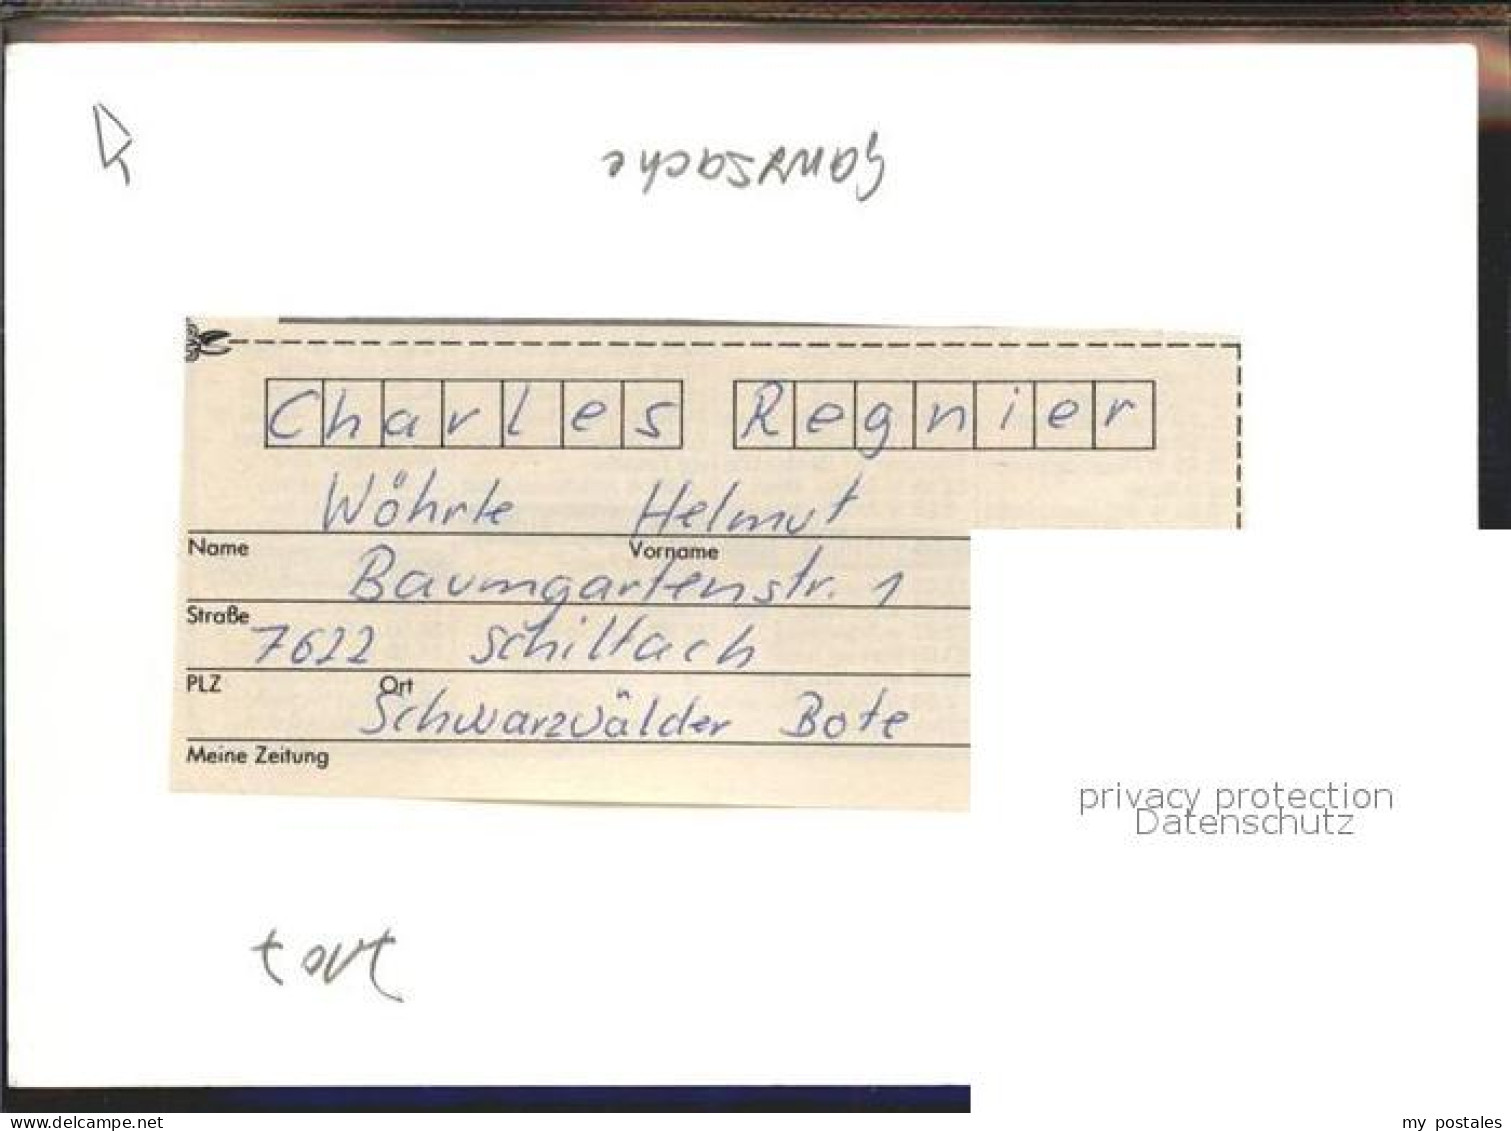 Ganzsache
Charles Regnier
Wöhrle Helmut
Name Vorname
Baumgartenstr. 1
Straße
7622 Schiltach
PLZ Ort
Schwarzwälder Bote
Meine Zeitung
privacy protection
Datenschutz
www.delcampe.net
my postales